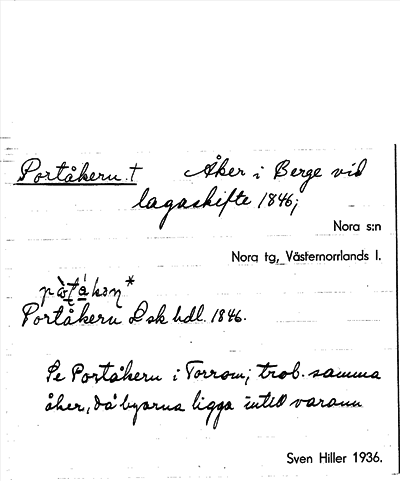 Portåkern † Åker i Berge vid
lagaskifte 1846;
Nora s:n
Nora tg, Västernorrlands l.
Portåkern Lsk hdl. 1846.
Se Portåkern i Torrom; trol. samma
åker, då byarna ligga intill varann
Sven Hiller 1936.